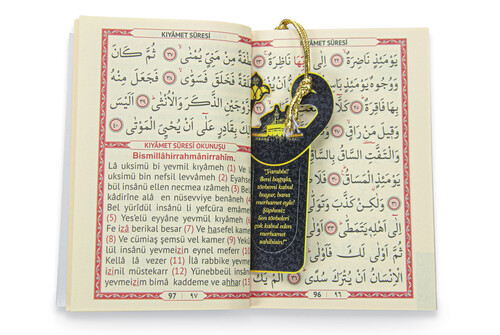 KIYÂMET SÛRESİ
يَوْمَئِذٍ نَاضِرَةٌ ﴿٢٢﴾ اِلٰى رَبِّهَا نَاظِرَةٌ ﴿٢٣﴾
وَوُجُوهٌ يَوْمَئِذٍ
بِهَا فَاقِرَةٌ ﴿٢٥﴾ كَلَّا
وَقِيلَ مَنْ رَاقٍ
وَالْتَفَّتِ السَّاقُ بِالسَّاقِ
يَوْمَئِذٍ الْمَسَاقُ
وَلٰكِنْ كَذَّبَ وَتَوَلّٰى
اِلٰى اَهْلِهِ يَتَمَطّٰى
ثُمَّ اَوْلٰى لَكَ
الْاِنْسَانُ اَنْ يُتْرَكَ سُدًى ﴿٣٦﴾ اَلَمْ يَكُ
96 ٩٦
"Yarabbi!
İleni bağışla,
tövbemi kabul
buyur, bana
merhamet eyle!
Şüphesiz
Sen tövbeleri
çok kabul eden
merhamet
sahibisin!"
KIYÂMET SÛRESİ
نُطْفَةً مِنْ مَنِيٍّ يُمْنٰى ﴿٣٧﴾ ثُمَّ كَانَ
عَلَقَةً فَخَلَقَ فَسَوّٰى ﴿٣٨﴾ فَجَعَلَ مِنْهُ
الزَّوْجَيْنِ الذَّكَرَ وَالْاُنْثٰى ﴿٣٩﴾ اَلَيْسَ
ذٰلِكَ بِقَادِرٍ عَلٰى اَنْ يُحْيِيَ الْمَوْتٰى ﴿٤٠﴾
KIYÂMET SÛRESİ OKUNUŞU
Bismillâhirrahmânirrahîm.
Lâ uksimü bi yevmil kıyâmeh (1) Ve lâ
uksimü bin nefsil levvâmeh (2) Eyahse
bül insânü ellen necmea ızâmeh (3) Belâ
kâdirîne alâ en nüsevviye benâneh (4)
Bel yürîdül insânü li yefcüra emâmeh
(5) Yes'elü eyyâne yevmül kıyâmeh (6)
Fe izâ berikal besar (7) Ve hasefel kamer
(8) Ve cümiaş şemsü vel kamer (9) Yekû
lül insânü yevmeizin eynel mefer (10)
Kellâ lâ vezer (11) İlâ rabbike yevme
izinil müstekarr (12) Yünebbeül insânü
yevmeizim bimâ kaddeme ve ahhar (13)
97 ٩٧